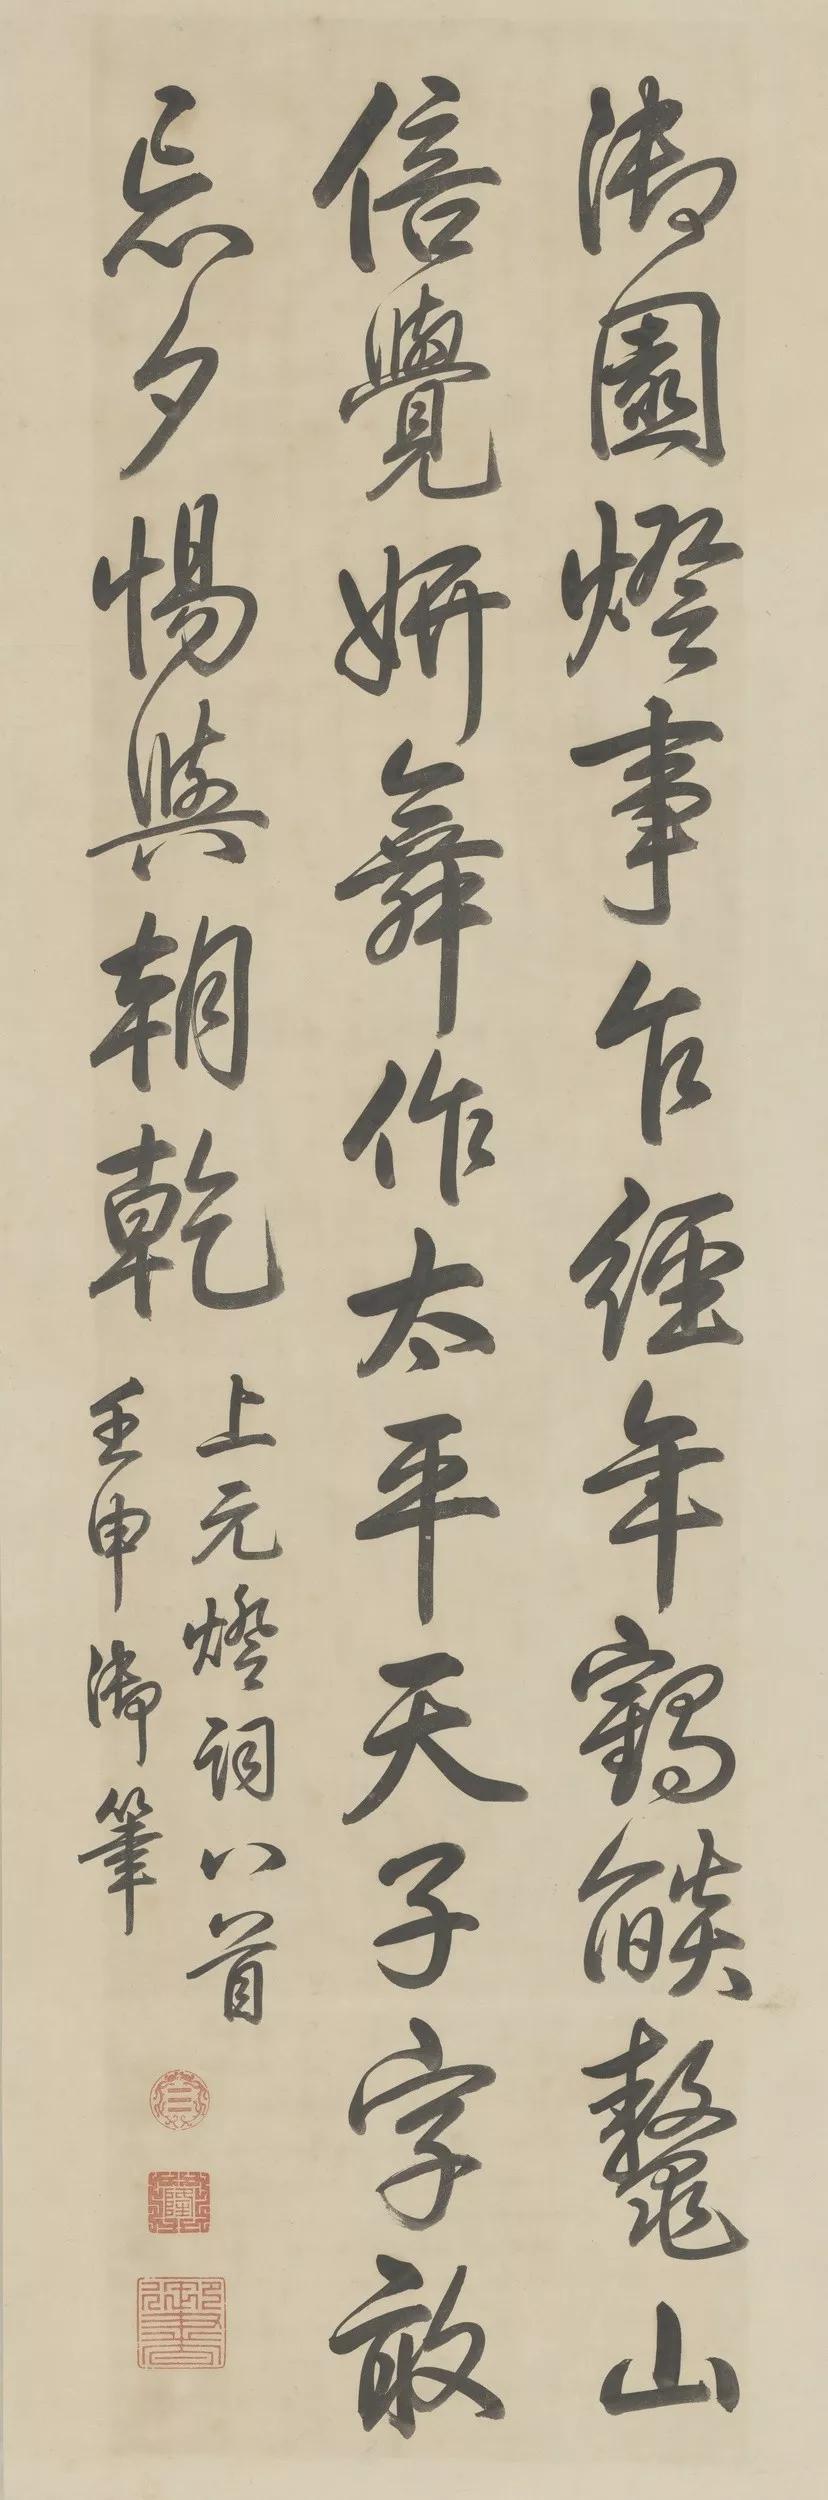 御園燈事乍經年鶴燄鼇山
倍覺妍舞作太平天子字敢
忘夕惕與朝乾
上元燈詞八首
壬申御筆
三
乾隆
御書